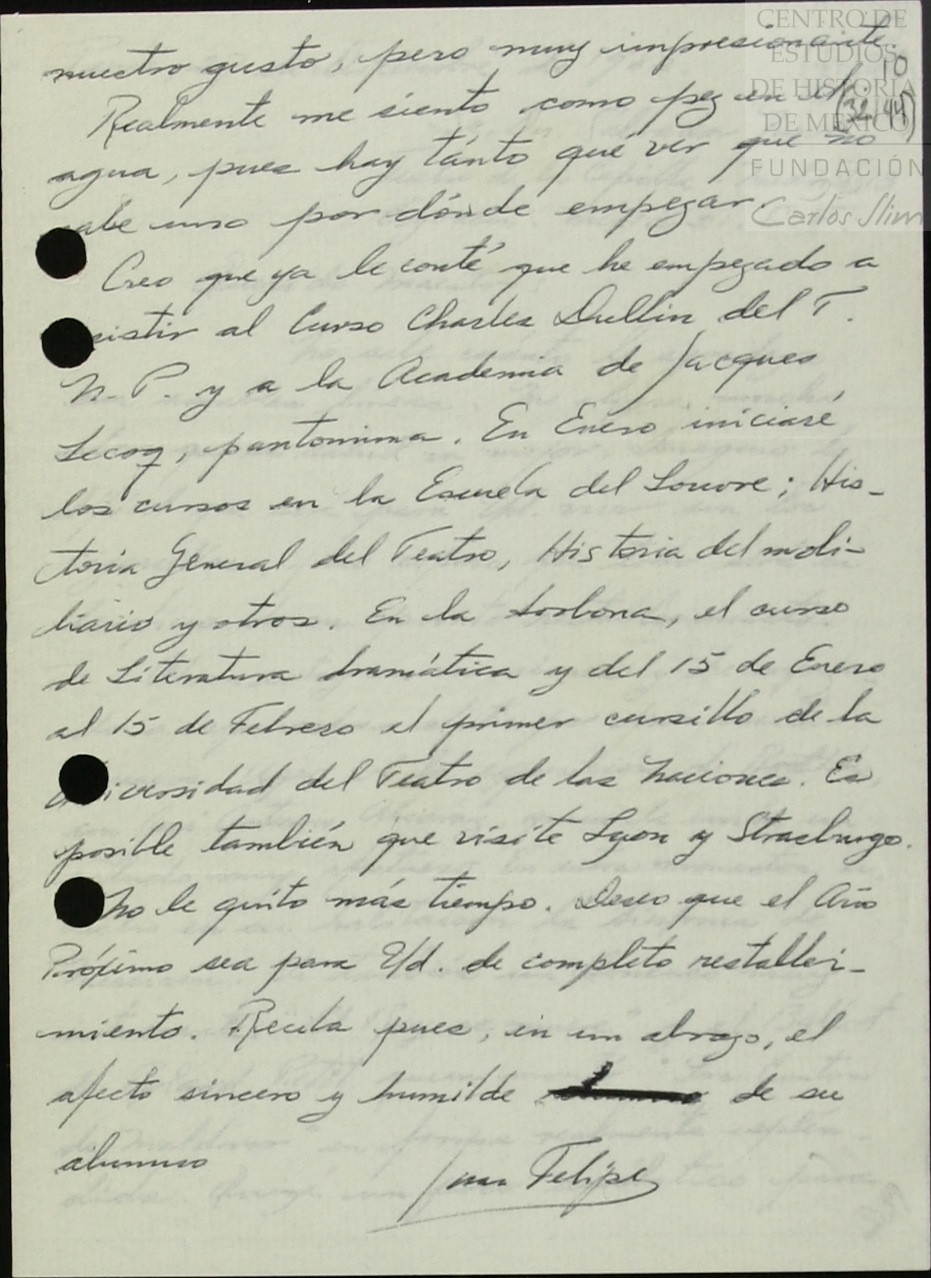 CENTRO DE
ESTUDIOS
DE HISTORIA
DE MÉXICO
FUNDACIÓN
Carlos Slim
10
nuestro gusto, pero muy impresionante.
Realmente me siento como pez en el
agua, pues hay tánto que ver que no
sabe uno por dónde empezar.
Creo que ya le conté que he empezado a
asistir al Curso Charles Dullin del T.
N. P. y a la Academia de Jacques
Lecoq, pantomima. En Enero iniciaré
los cursos en la Escuela del Louvre; His-
toria General del Teatro, Historia del mobi-
liario y otros. En la Sorbona, el curso
de Literatura dramática y del 15 de Enero
al 15 de Febrero el primer cursillo de la
Universidad del Teatro de las Naciones. Es
posible también que visite Lyon y Strasburgo.
No le quito más tiempo. Deseo que el Año
Próximo sea para Ud. de completo restableci-
miento. Reciba pues, en un abrazo, el
afecto sincero y humilde de su
alumno
Juan Felipe